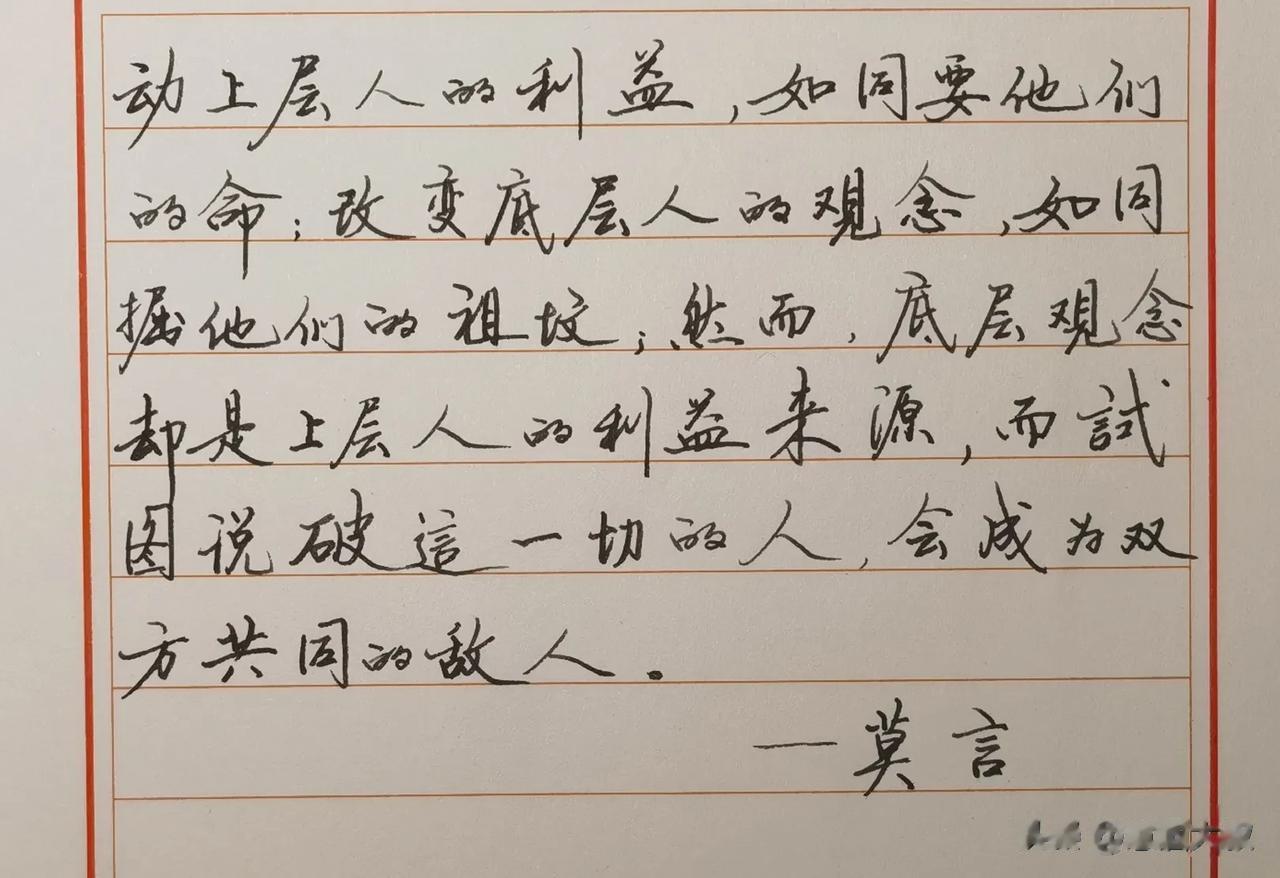 动上层人的利益，如同要他们
的命；改变底层人的观念，如同
掘他们的祖坟；然而，底层观念
却是上层人的利益来源，而試
图说破這一切的人，会成为双
方共同的敌人。
——莫言